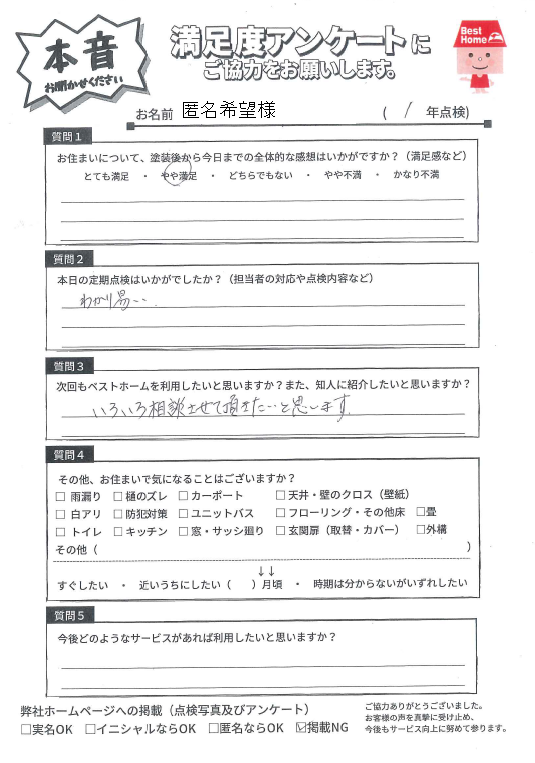 本音
お聞かせください
満足度アンケートに
ご協力をお願いします。
Best
Home
お名前 匿名希望様 ( 1 年点検)
質問1
お住まいについて、塗装後から今日までの全体的な感想はいかがですか？（満足感など）
とても満足 ・ やや満足 ・ どちらでもない ・ やや不満 ・ かなり不満
質問2
本日の定期点検はいかがでしたか？（担当者の対応や点検内容など）
わかり易い
質問3
次回もベストホームを利用したいと思いますか？また、知人に紹介したいと思いますか？
いろいろ相談させて頂きたいと思います
質問4
その他、お住まいで気になることはございますか？
□ 雨漏り □ 樋のズレ □ カーポート □ 天井・壁のクロス（壁紙）
□ 白アリ □ 防犯対策 □ ユニットバス □ フローリング・その他床 □畳
□ トイレ □ キッチン □ 窓・サッシ廻り □ 玄関扉（取替・カバー） □外構
その他（ ）
↓↓
すぐしたい ・ 近いうちにしたい（ ）月頃 ・ 時期は分からないがいずれしたい
質問5
今後どのようなサービスがあれば利用したいと思いますか？
弊社ホームページへの掲載（点検写真及びアンケート）
□実名OK □イニシャルならOK □匿名ならOK ☑掲載NG
ご協力ありがとうございました。
お客様の声を真摯に受け止め、
今後もサービス向上に努めて参ります。